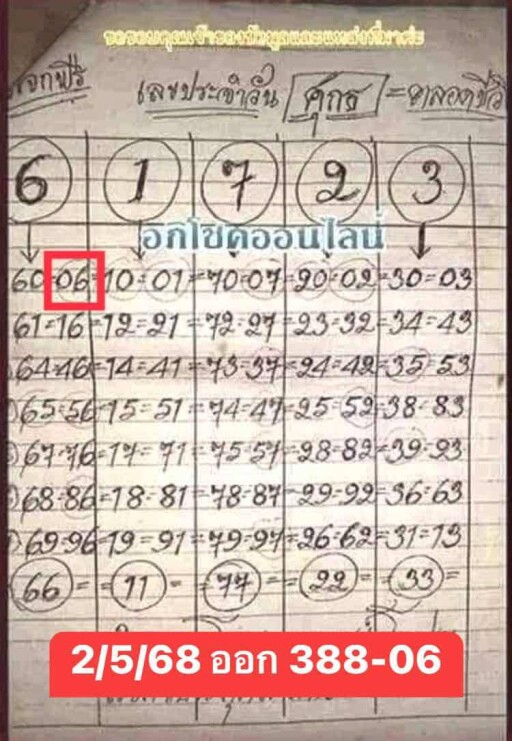 แจกฟรี
เลขประจำวัน ศุกร์ = ตลอดชีวิ
6 1 7 2 3
อกโชคออนไลน์
60=06=10=01=70=07=20=02=30=03
61=16=12=21=72=27=23=32=34=43
64=46=14=41=73=37=24=42=35=53
65=56=15=51=74=47=25=52=38=83
67=76=17=71=75=57=28=82=39=93
68=86=18=81=78=87=29=92=36=63
69=96=19=91=79=97=26=62=31=13
66= =11= =77= =22= =33=
2/5/68 ออก 388-06